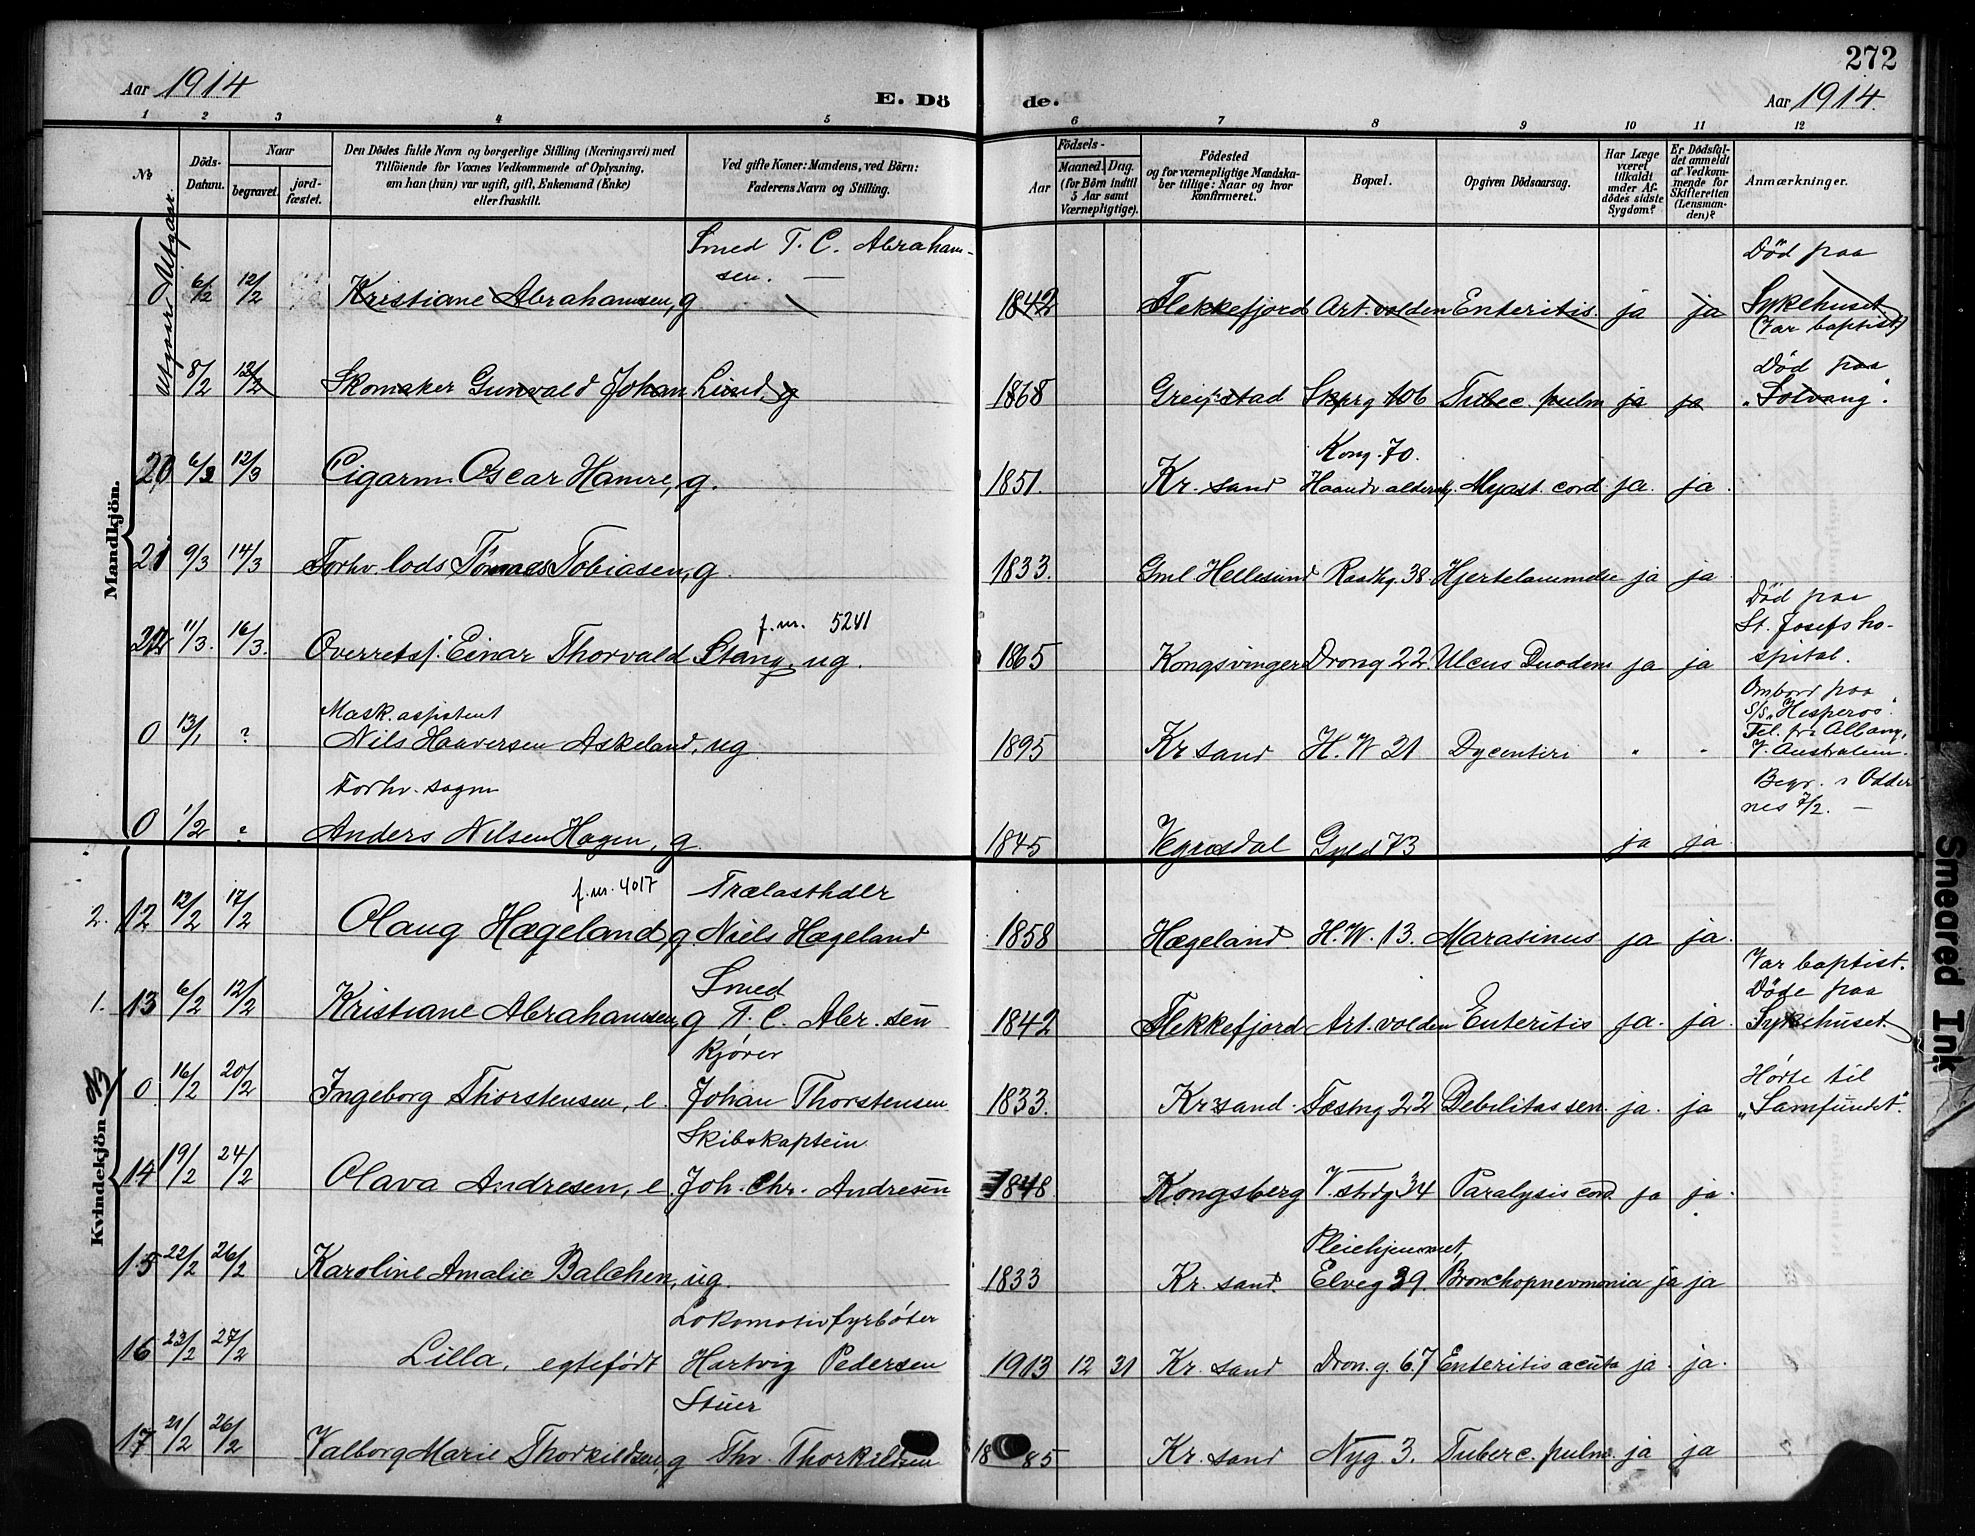 272
Aar 1914
E. Dö
de.
Aar 1914.
1 2 3 4 5 6 7 8 9 10 11 12
No
Döds-Datum.
Naar
begravet.
jord-fæstet.
Den Dödes fulde Navn og borgerlige Stilling (Næringsvei) med
Tilföiende for Voxnes Vedkommende af Oplysning,
om han (hun) var ugift, gift, Enkemand (Enke)
eller fraskilt.
Ved gifte Koner: Mandens, ved Börn:
Faderens Navn og Stilling.
Födsels-
Aar
Maaned. Dag.
(for Börn indtil
5 Aar samt
Værnepligtige).
Födested
og for værnepligtige Mandska-
ber tillige: Naar og hvor
konfirmeret.
Bopæl.
Opgiven Dödsaarsag.
Har Læge
været
tilkaldt
under Af-
dödes sidste
Sygdom?
Er Dödsfal-
det anmeldt
af Vedkom-
mende for
Skifteretten
(Lensman-
den)?
Anmærkninger.
Mandkjön.
Utgaar Utgaar.
Smed T. C. Abraham-
sen. —
Død paa
0 6/2 12/2 Kristiane Abrahamsen, g 1842 Flekkefjord Art. volden Enteritis. ja ja Sykehuset
(Var baptist)
Død paa
8/2 12/2 Skomaker Gunvald Johan Lund. g 1868 Greipstad Skprg 106 Tuberc. pulm ja ja "Solvang".
Kong. 70.
20 6/3 12/3 Cigarm. Oscar Hamre, g. 1851. Kr. sand Haandv. altershj. Myast. cord. ja. ja.
21 9/3 14/3 Forhv. lods Tönnes Tobiasen, g. 1833. Gml Hellesund Raadhg. 38. Hjertelammelse ja ja
f. nr. 5241
Død paa
St. Josefs ho-
spital.
22 11/3. 16/3. Overretssf. Einar Thorvald Stang. ug. 1865 Kongsvinger Drong 22. Ulcus Duodeni ja ja
Mask. assistent
Ombord paa
S/S "Hesperos".
Tel. fra Albany,
V. Australien.
0 13/1 ? Nils Haaversen Askeland, ug. 1895 Kr sand H. W 21 Dycentiri " "
Forhv. sagm
Begr. i Odder
nes 7/2. —
0 1/2 ? Anders Nilsen Hagen, g. 1845 Vegusdal Gyld 73 ja ja.
Kvindekjön
NB
f. nr. 4017
Trælasthdlr
2. 12 12/2 17/2 Olaug Hægeland, g Niels Hægeland 1858 Hægeland H. W. 13. Marasmus ja ja.
Smed
Var baptist.
Døde paa
1. 13 6/2 12/2 Kristiane Abrahamsen, g T. C. Abr. sen 1842 Flekkefjord Art. volden Enteritis ja. ja. Sykehuset.
Kjører
Hørte til
0 16/2 20/2 Ingeborg Thorstensen, e. Johan Thorstensen 1833. Kr. sand. Fæstng 22 Debilitas sen. ja. ja "Samfundet".
Skibskaptein
14 19/2 24/2 Olava Andresen, e. Joh. Chr. Andresen 1848 Kongsberg V. strdg 34 Paralysis cord. ja ja.
Pleiehjemmet,
15 22/2 26/2 Karoline Amalie Balchen, ug. 1833 Kr. sand. Elveg 39. Bronchopnevmonia ja ja
Lokomotivfyrbøter
16 23/2 27/2 Lilla, egtefødt Hartvig Pedersen 1913 12 31 Kr. sand Dron. g. 67 Enteritis acuta ja. ja.
Stuer
17 21/2 26/2 Valborg Marie Thorkildsen, g Thv. Thorkildsen 1885 Kr. sand Nyg 3. Tuberc. pulm. ja ja
Smeared Ink